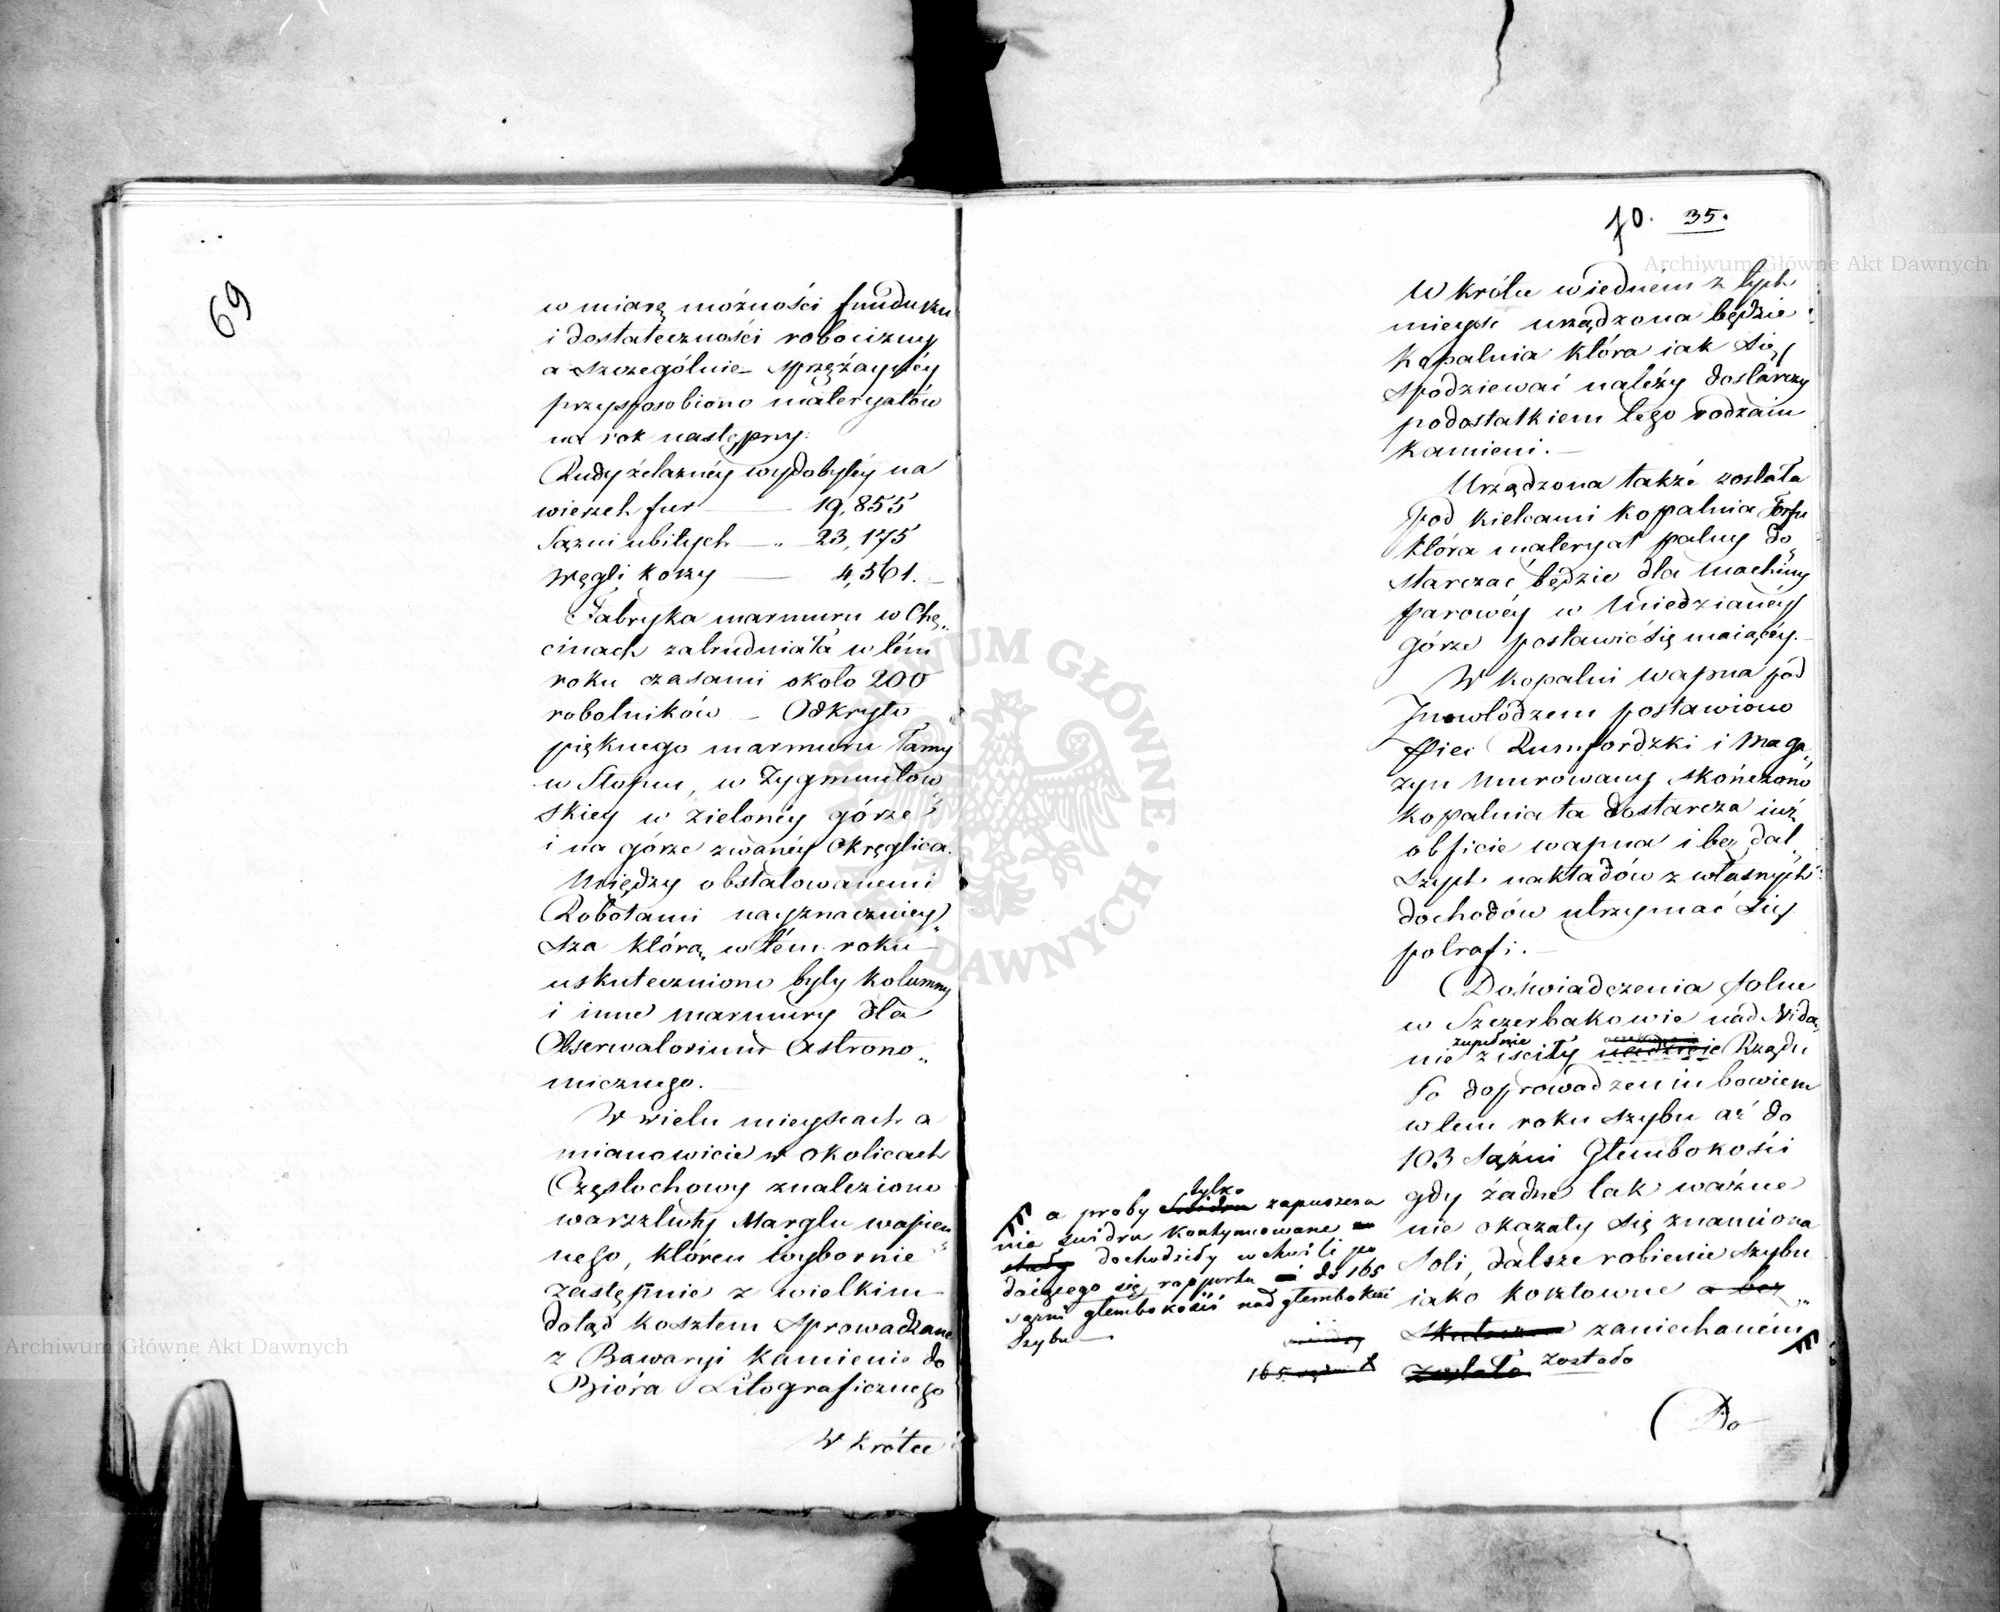 69
w miarę możności funduszu
i dostateczności robocizny
a szczególnie sprzężayney
przysposobiono materyałów
na rok następny:
Rudy żelazney wydobytey na
wierzch fur — 19,855
Sążni ubitych — „ 23,175
Węgli koszy — 4,561.—
Fabryka marmuru w Chę„
cinach zatrudniała w tém
roku czasami około 200
robotników — Odkryto
pięknego marmuru łamy
w Słopcu, w Zygmuntow„
skiey w zieloney górze
i na górze zwaney Okręglica.
Między obstalowanemi
Robotami nayznaczniey„
sza którą w tém roku
uskuteczniono były kolumny
i inne marmury dla
Obserwatorium Astrono„
micznego.—
W wielu mieyscach a
mianowicie w okolicach
Częstochowy znaleziono
warsztwy Marglu wapien„
nego, któren wybornie
zastępuie z wielkim
dotąd kosztem Sprowadzane
z Bawaryi kamienie do
Bióra Litograficznego
W krótce
70. 35.
W krótce wiednem z tych
mieysc urządzona będzie
Kopalnia która iak się
spodziewać należy dostarczy
podostatkiem tego rodzaiu
kamieni.—
Urządzona także została
Pod Kielcami kopalnia Torfu
która materyał palny do„
starczać będzie dla Machiny
parowey w Miedzianey
górze postawić się maiącey.—
W kopalni wapna pod
Inowłodzem postawiono
Piec Rumfordzki i Maga„
zyn Murowany skończono
kopalnia ta dostarcza iuż
obficie wapna i bez dal„
szych nakładów z własnych
dochodów utrzymać się
potrafi.—
Doświadczenia solne
w Szczerbakowie nad Nidą
zupełnie
nie ziściły nadzieie Rządu
Po doprowadzeniu bowiem
w tem roku szybu aż do
103 Sążni Głembokości
gdy żadne tak ważne
nie okazały się znamiona
Soli, dalsze robienie szybu
iako kosztowne a bez„
skuteczne zaniechaném
zostało zostało
tylko
a proby świdru zapuszcza
nia świdru kontynuowane
dochodziły w chwili po
daiącego się rapportu do 165
sążni głembokości nad głembokość
Szybu —
165 sążni
Do